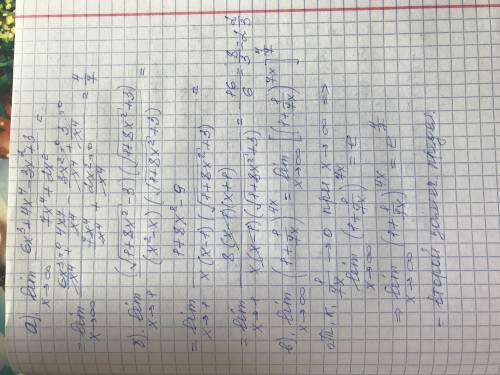 а). lim x→∞ (6x³+4x⁴-3x²+3)/(7x⁴+2x²) =
= lim x→∞ (6x³/x⁴ + 4x⁴/x⁴ - 3x²/x⁴ + 3/x⁴)/(7x⁴/x⁴ + 2x²/x⁴) = 4/7
б). lim x→1 (√1+8x² -3)(√1+8x² +3)/((x²-x)(√1+8x² +3)) =
= lim x→1 (1+8x²-9)/(x(x-1)(√1+8x² +3)) =
= lim x→1 8(x-1)(x+1)/(x(x-1)(√1+8x² +3)) = 16/6 = 8/3 = 2 2/3
в). lim x→∞ (1+1/7x)^4x = lim x→∞ [(1+1/7x)^7x]^4/7
т.к. 1/7x → 0 при x→∞ =>
lim x→∞ (1+1/7x)^7x = e
=> lim x→∞ (1+1/7x)^4x = e^4/7
- второй замеч. предел.